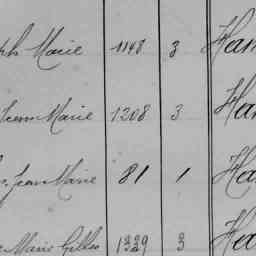 ph Marie 1148 3 Ham
Jean Marie 1208 3 Ha
Jean Marie 81 1 Ha
Marie Gilles 1329 3 Ha